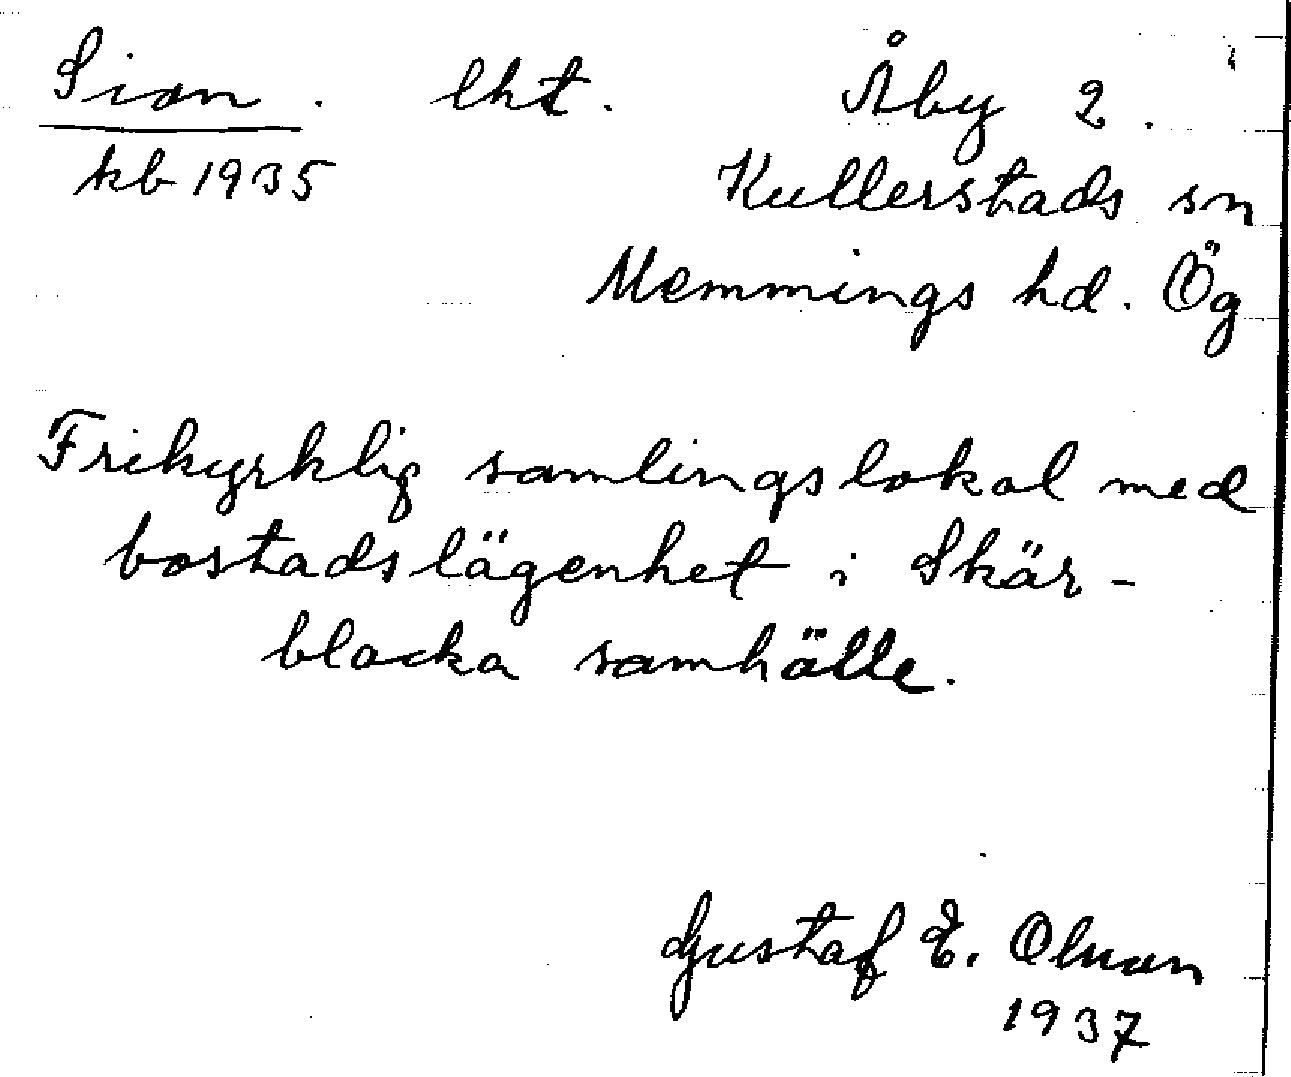 Sion. lht. Åby 2.
kb 1935 Kullerstads sn
Memmings hd. Ög
Frikyrklig samlingslokal med
bostadslägenhet i Skär-
blacka samhälle.
Gustaf E. Olsson
1937